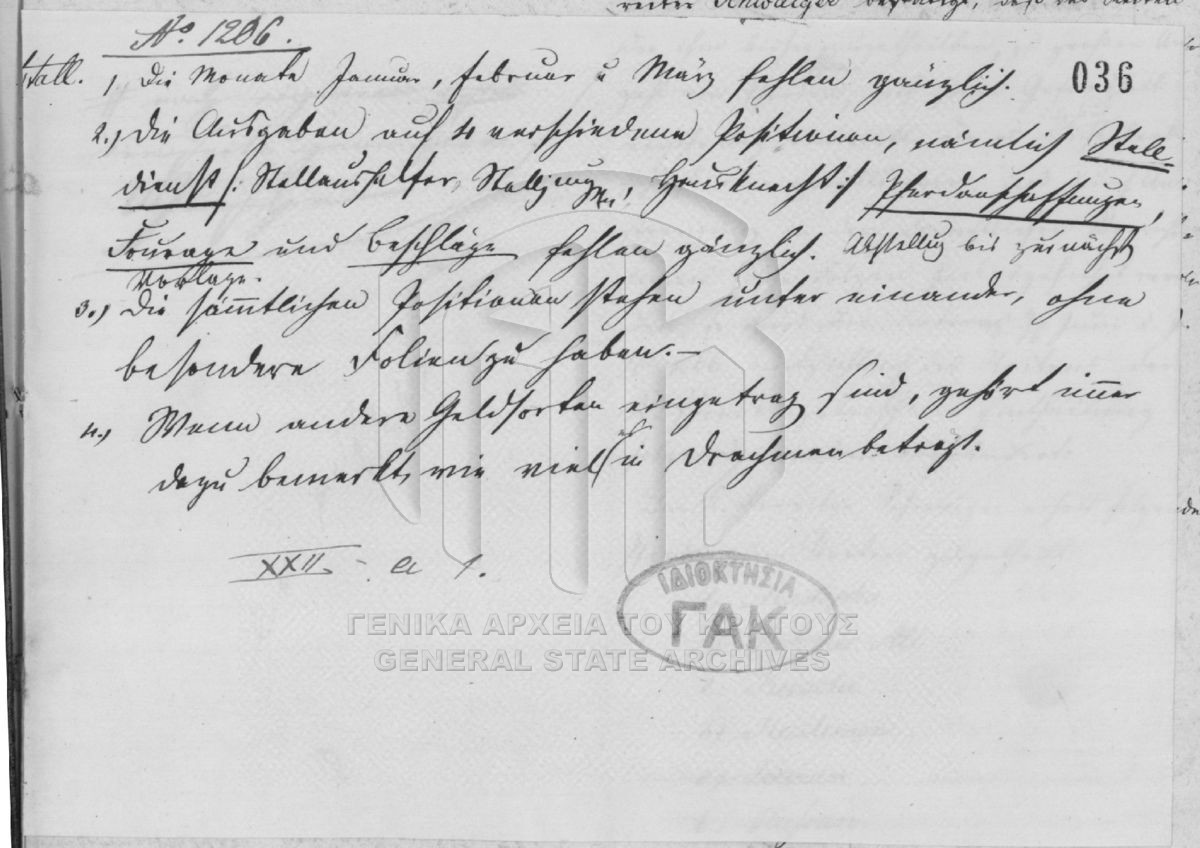 No 1206.
Stall. 1.) Die Monate Januar, Februar u März fehlen gänzlich.
036
2.) Die Ausgaben auf 4 verschiedene Positionen, nämlich Stall-
dienst /: Stallaushelfer, Stalljungen, Hausknecht :/ Pferdanschaffungen,
Fourage und Beschläge fehlen gänzlich. Abstellug bis zur nächst
Vorlage.
3.) Die sämmtlichen Positionen stehen unter einander, ohne
besondere Folien zu haben.–
4.) Wenn andere Geldsorten eingetrag sind, gehört immer
dazu bemerkt, wie viel es in Drachmen beträgt.
XXII. a 1.
ΙΔΙΟΚΤΗΣΙΑ
ΓΑΚ
ΓΕΝΙΚΑ ΑΡΧΕΙΑ ΤΟΥ ΚΡΑΤΟΥΣ
GENERAL STATE ARCHIVES